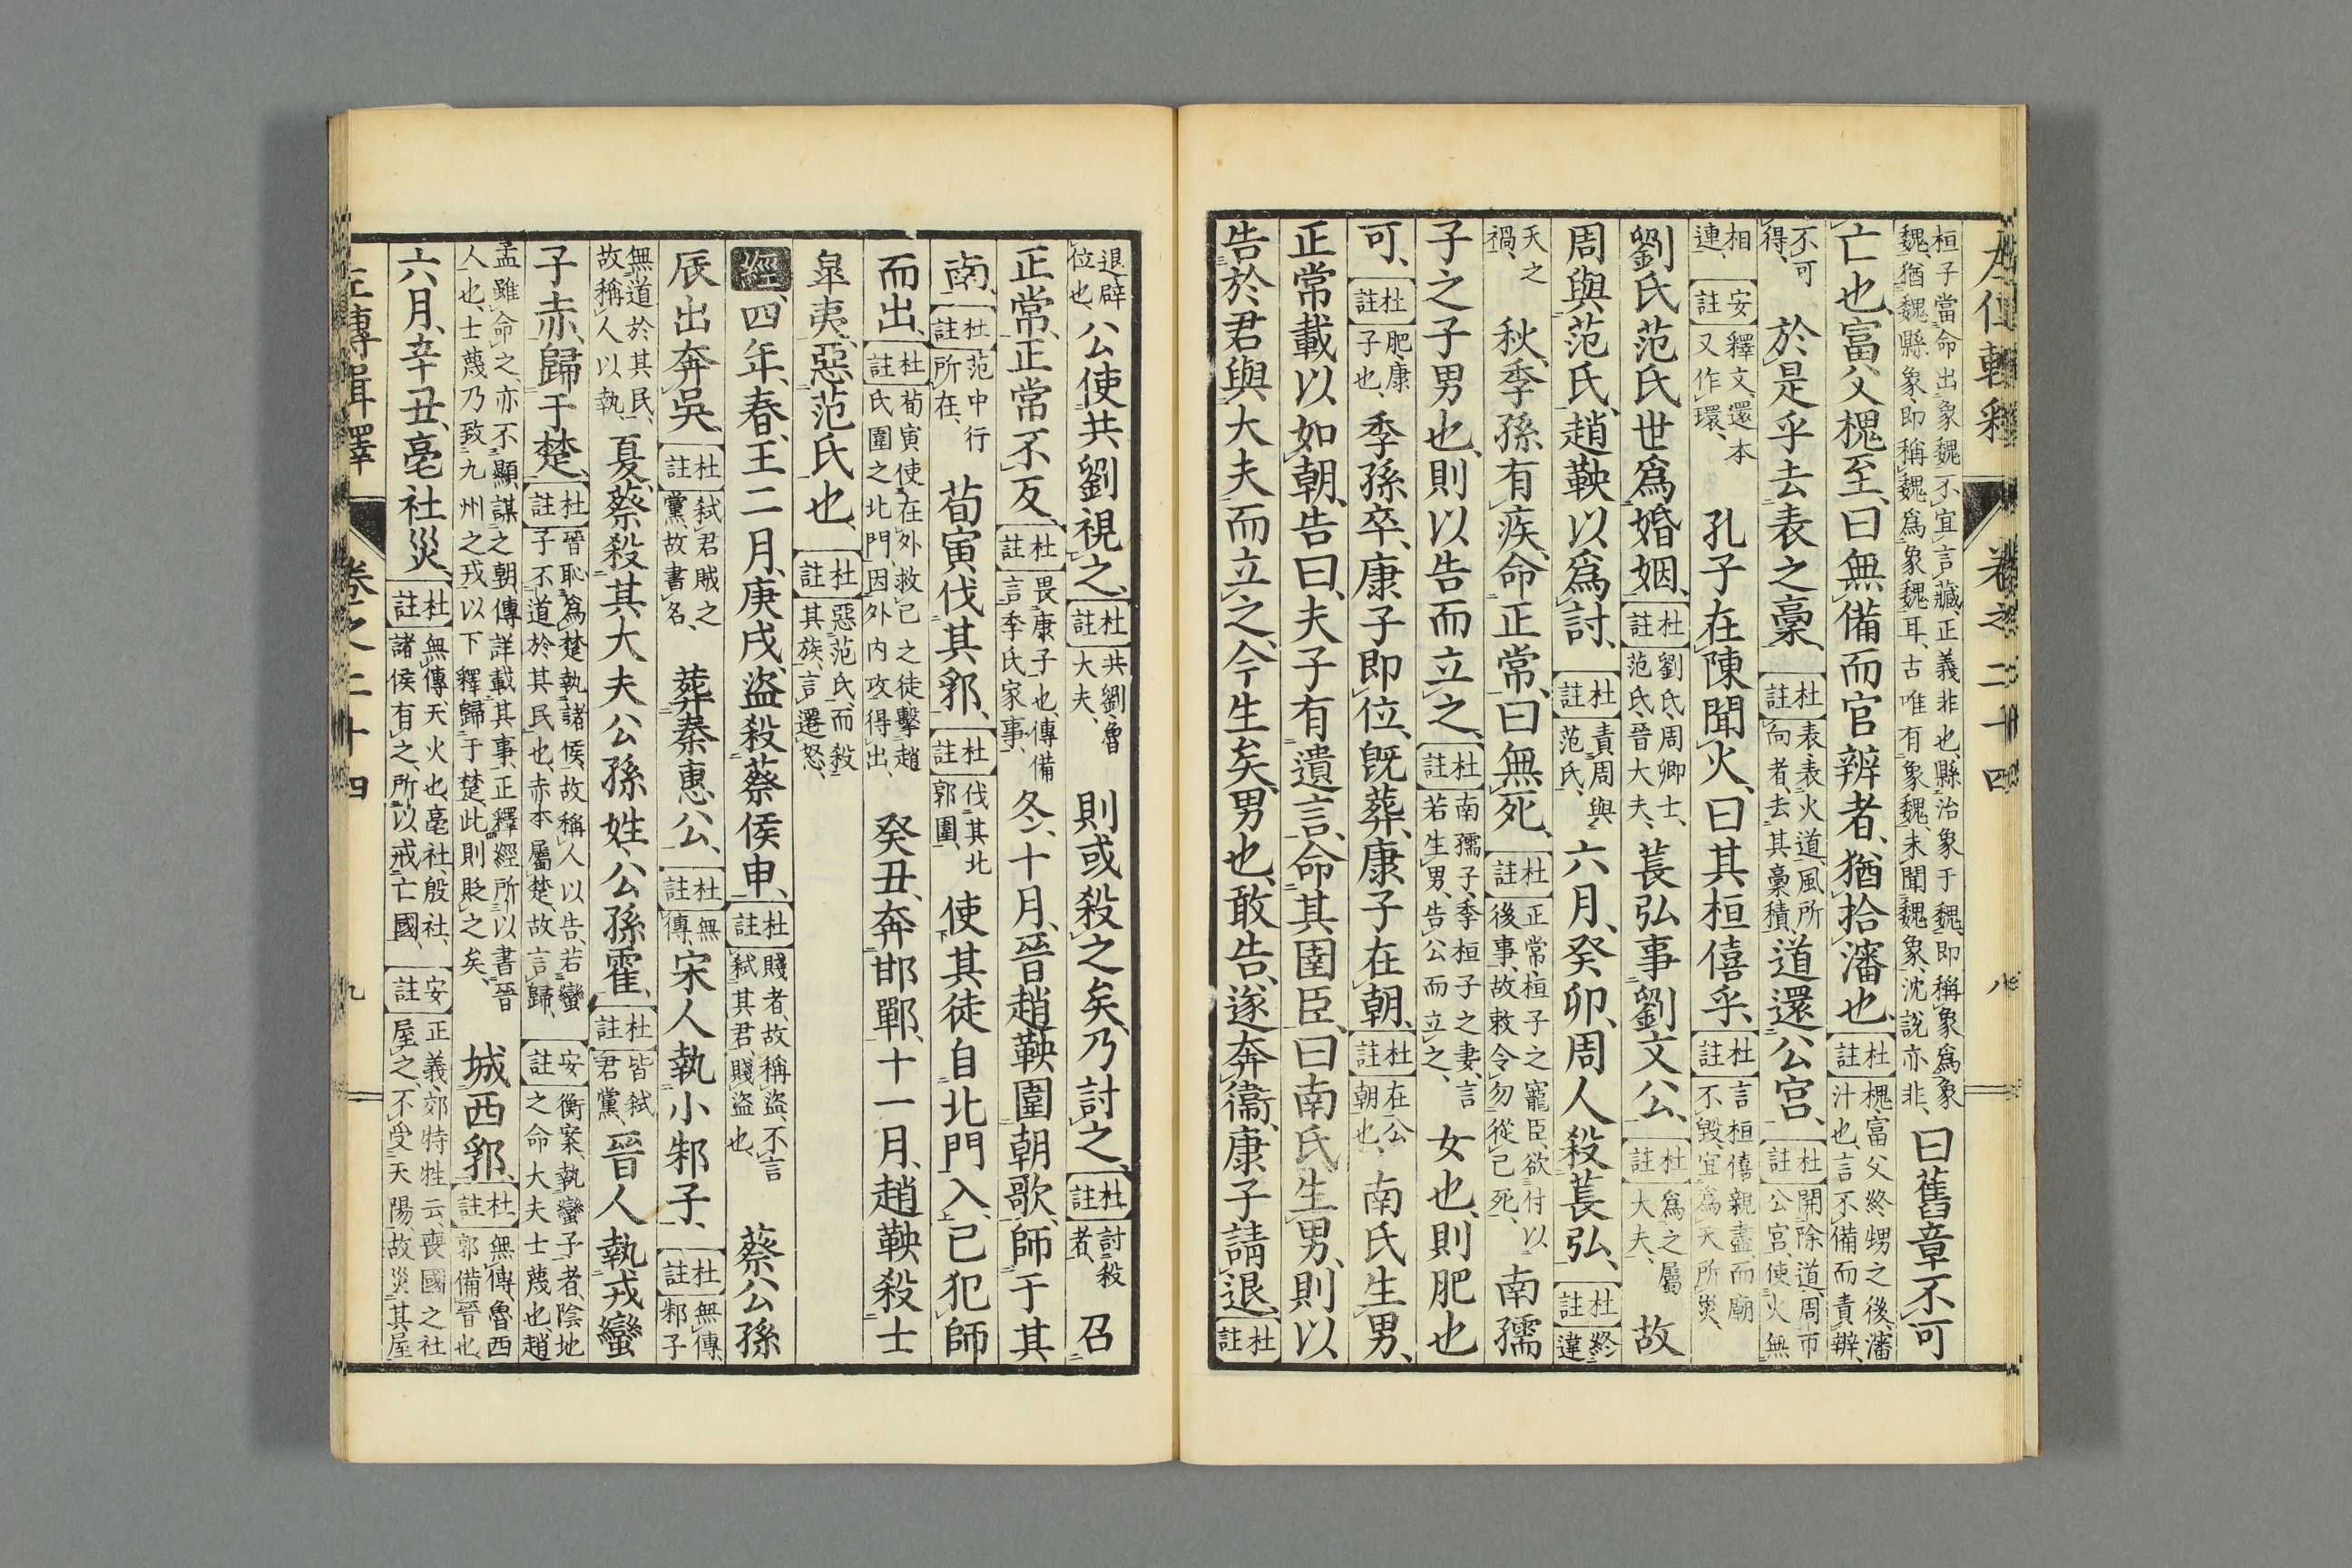 左傳輯釋 卷之二十四 八
桓子當命出象魏不宜言藏、正義非也、縣治象于魏、即稱象爲象
魏、猶魏縣象、即稱魏爲象魏耳、古唯有象魏、未聞魏象、沈說亦非、曰舊章不可
亡也、富父槐至、曰無備而官辨者、猶拾瀋也、杜註槐、富父終甥之後、瀋
汁也、言不備而責辨、
不可
得、於是乎去表之稾、杜註表、表火道、風所
向者、去其稾積、道還公宮、杜註開除道、周帀
公宮、使火無
相
連、安註釋文、還本
又作環、孔子在陳聞火、曰其桓僖乎、杜註言桓僖親盡而廟
不毀、宜爲天所災、
劉氏范氏世爲婚姻、杜註劉氏、周卿士、
范氏、晉大夫、萇弘事劉文公、杜註爲之屬
大夫、故
周與范氏、趙鞅以爲討、杜註責周與
范氏、六月、癸卯、周人殺萇弘、杜註終
違
天之
禍、秋、季孫有疾、命正常、曰無死、杜註正常、桓子之寵臣、欲付以
後事、故敕令勿從己死、南孺
子之子男也、則以告而立之、杜註南孺子、季桓子之妻、言
若生男、告公而立之、女也、則肥也
可、杜註肥、康
子也、季孫卒、康子即位、既葬、康子在朝、杜註在公
朝也、南氏生男、
正常載以如朝、告曰、夫子有遺言、命其圉臣、曰南氏生男、則以
告於君與大夫而立之、今生矣、男也、敢告、遂奔衞、康子請退、杜註
退辟
位也、公使共劉視之、杜註共劉、魯
大夫、則或殺之矣、乃討之、杜註討殺
者、召
正常、正常不反、杜註畏康子也、傳備
言季氏家事、冬、十月、晉趙鞅圍朝歌、師于其
南、杜註范中行
所在、荀寅伐其郛、杜註伐其北
郭圍、使其徒自北門入、己犯師
而出、杜註荀寅使在外救己之徒擊趙
氏圍之北門、因外內攻得出、癸丑、奔邯鄲、十一月、趙鞅殺士
皐夷、惡范氏也、杜註惡范氏、而殺
其族、言遷怒、
經四年、春、王二月、庚戌、盜殺蔡侯申、杜註賤者、故稱盜、不言
弑其君、賤盜也、蔡公孫
辰出奔吳、杜註弑君賊之
黨、故書名、葬秦惠公、杜註無
傳、宋人執小邾子、杜註無傳、
邾子
無道於其民、
故稱人以執、夏、蔡殺其大夫公孫姓、公孫霍、杜註皆弑
君黨、晉人執戎蠻
子赤、歸于楚、杜註晉恥爲楚執諸侯、故稱人以告、若蠻
子不道於其民也、赤本屬楚、故言歸、安註衡案、執蠻子者、陰地
之命大夫士蔑也、趙
孟雖命之、亦不顯謀之朝、傳詳載其事、正釋經所以書晉
人也、士蔑乃致九州之戎以下、釋歸于楚、此則貶之矣、城西郛、杜註無傳、魯西
郭、備晉也、
六月、辛丑、亳社災、杜註無傳、天火也、亳社、殷社、
諸侯有之、所以戒亡國、安註正義、郊特牲云、喪國之社
屋之、不受天陽、故災其屋
左傳輯釋 卷之二十四 九